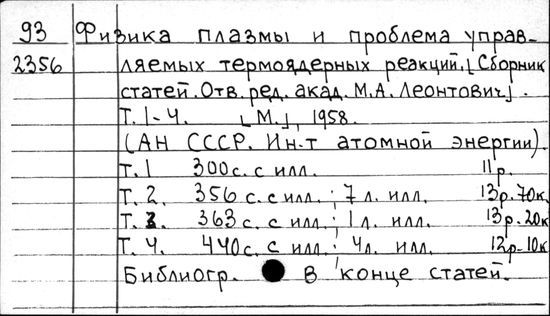 93 Физика плазмы и проблема управ-
2356 ляемых термоядерных реакций. [Сборник
статей. Отв. ред. акад. М.А. Леонтович].
Т. 1-4. [М.], 1958.
(АН СССР. Ин-т атомной энергии).
Т. 1 300 с. с илл. 11 р.
Т. 2. 356 с. с илл.; 7 л. илл. 13 р. 70 к.
Т. 3. 363 с. с илл.; 1 л. илл. 13 р. 20 к
Т. 4. 440 с. с илл.; 4 л. илл. 12 р. 10 к
Библиогр. в конце статей.